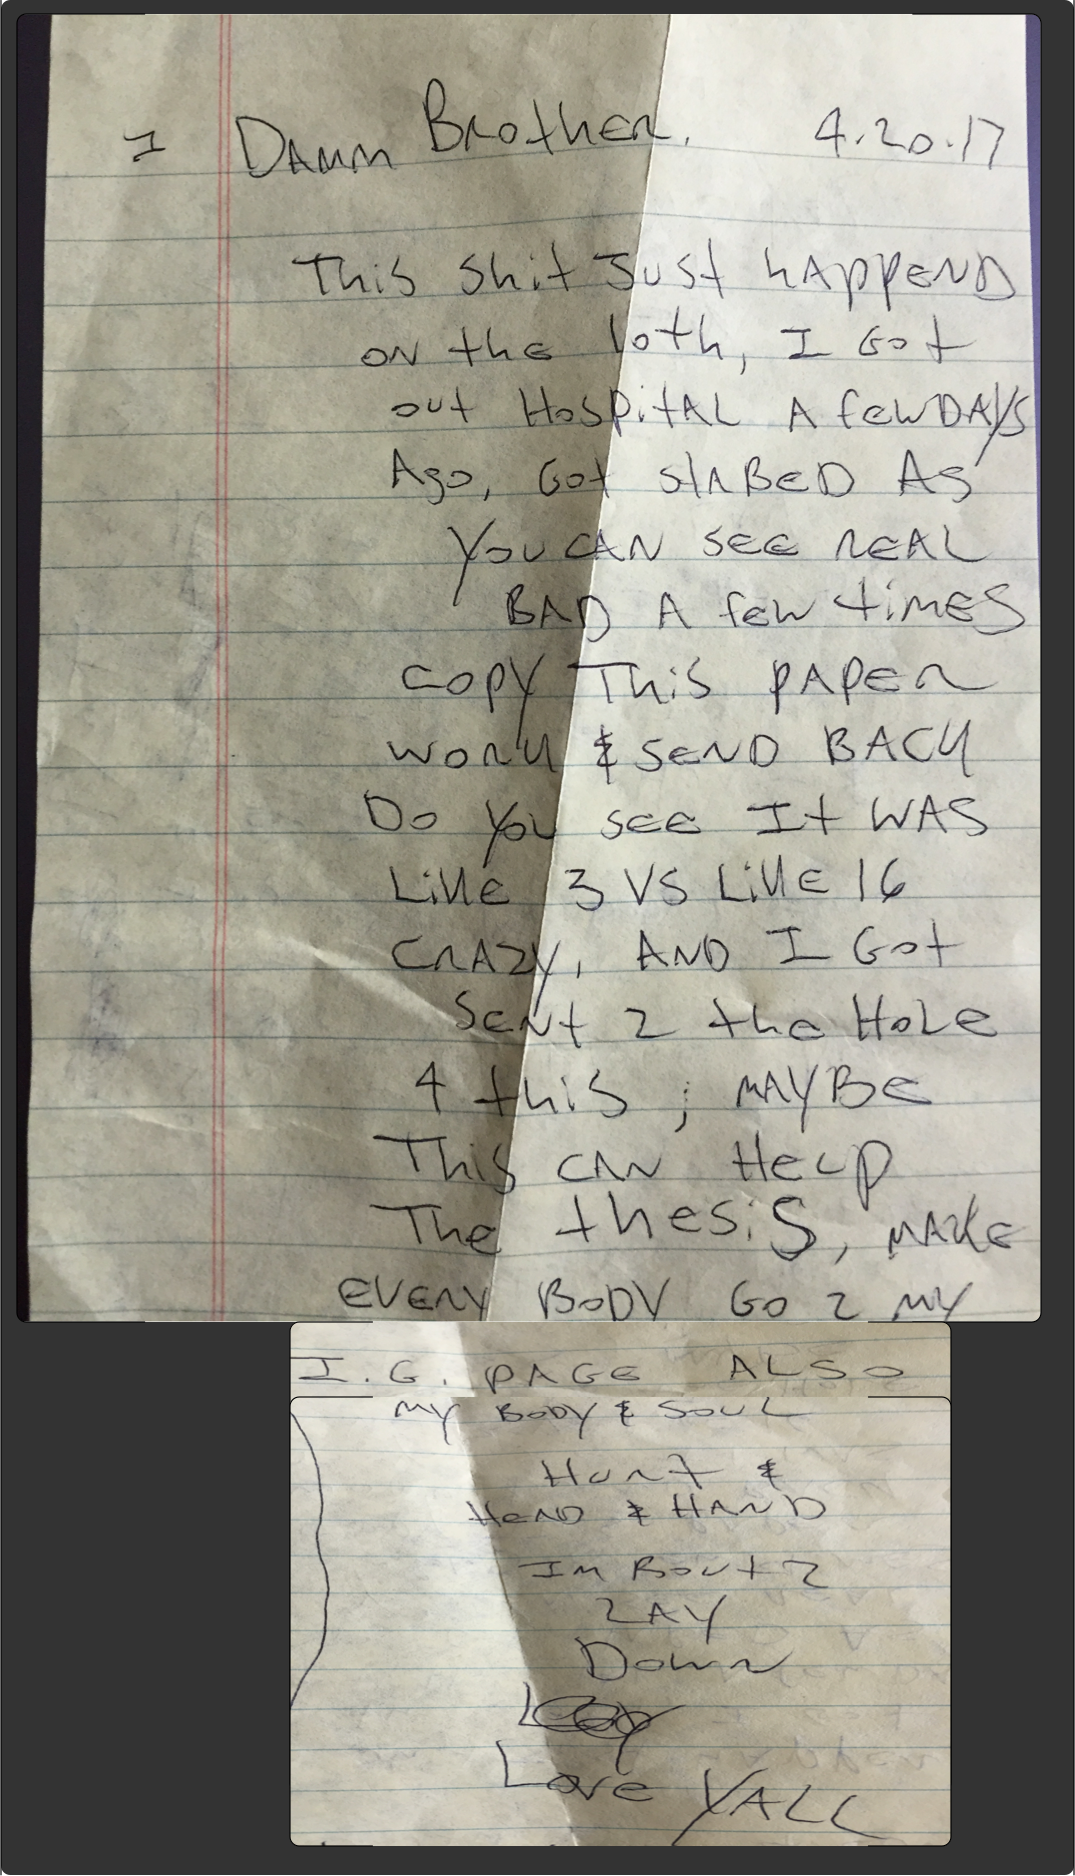 I Damm Brother. 4.20.17
This shit Just hAppenD
on the 10th, I Got
out HospitAL A few DAys
Ago, Got stABeD As
You CAN see ReAL
BAD A few times
copy This pApeR
woRk & senD BACk
Do you see It WAS
Like 3 VS Like 16
CRAZY, AND I Got
Sent 2 the HoLe
4 this ; MAYBe
This CAN HeLp
The thesiS, MAKe
eveRy BoDy Go 2 My
I.G. PAGe ALSO
My BoDy & SouL
HuRt &
HeAD & HAND
Im Bout 2
LAY
Down
Love YALL